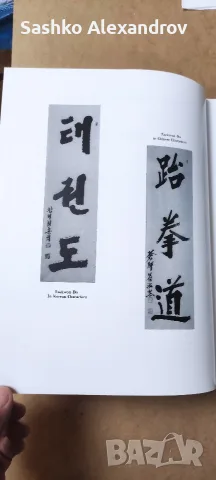 Sashko Alexandrov
태권도
Taekwon-Do
In Korean Characters
Taekwon-Do
In Chinese Characters
跆拳道
BAZAR.BG